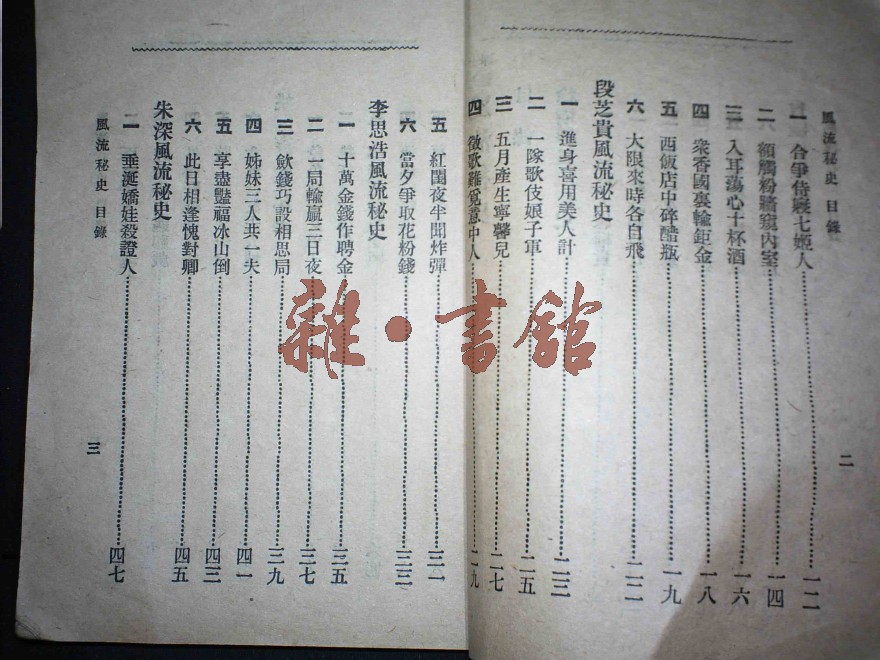 風流秘史 目錄
二
一 合爭侍寢七姬人…………一二
二 額觸粉牆窺內室…………一四
三 入耳蕩心十杯酒…………一六
四 衆香國裏輸鉅金…………一八
五 西飯店中碎醋瓶…………一九
六 大限來時各自飛…………二一
段芝貴風流秘史
一 進身喜用美人計…………二三
二 一隊歌伎娘子軍…………二五
三 五月產生寧馨兒…………二七
四 徵歌難覓意中人…………二九
五 紅閨夜半聞炸彈…………三一
六 當夕爭取花粉錢…………三三
李思浩風流秘史
一 十萬金錢作聘金…………三五
二 一局輸贏三日夜…………三七
三 歛錢巧設相思局…………三九
四 姊妹三人共一夫…………四一
五 享盡豔福冰山倒…………四三
六 此日相逢愧對卿…………四五
朱深風流秘史
一 垂涎嬌娃殺證人…………四七
風流秘史 目錄
三
雜·書館